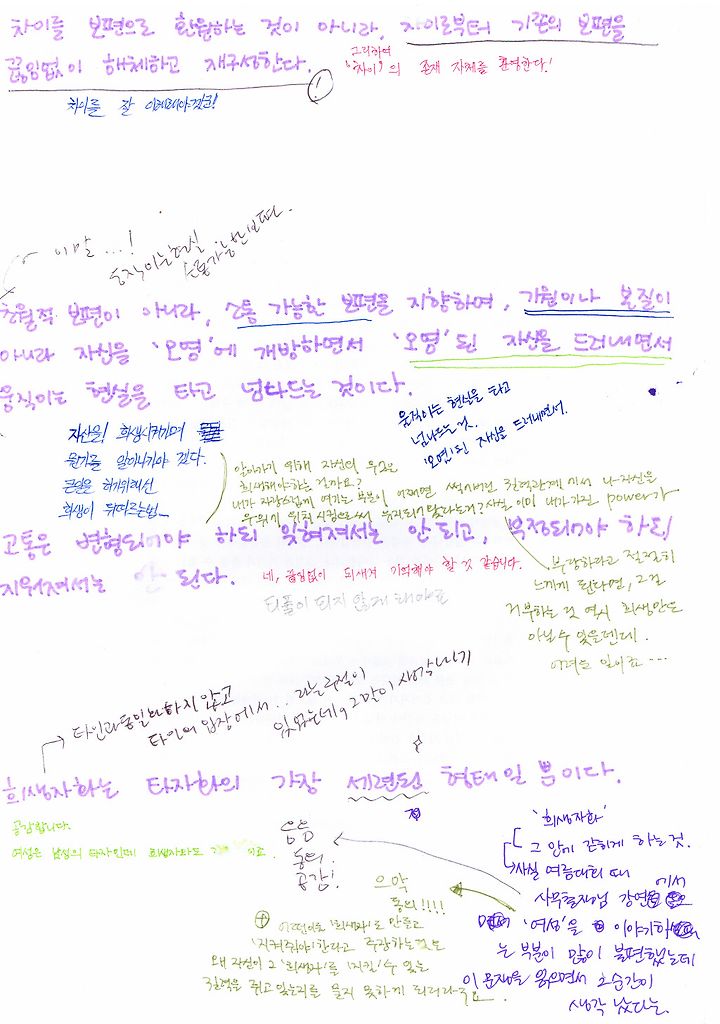 차이를 보편으로 환원하는 것이 아니라, 차이로부터 기존의 보편을
끊임없이 해체하고 재구성한다.
그리하여
'차이'의 존재 자체를 환영한다!
차이를 잘 이해해야겠군!
이 말 ...!
움직이는 현실
소통가능한 보편.
초월적 보편이 아니라, 소통 가능한 보편을 지향하며, 기원이나 본질이
아니라 자신을 '오염'에 개방하면서 '오염'된 자신을 드러내면서
움직이는 현실을 타고 넘나드는 것이다.
움직이는 현실을 타고
넘나드는것.
'오염'된 자신을 드러내면서.
자신을! 희생시켜가며
뭔가를 알아나가야 겠다.
큰일을 하기위해선
희생이 뒤따르는법_
알아가기 위해 자신의 무엇을
희생해야하는 걸까요?
내가 자랑스럽게 여기는 부분이 어쩌면 썩어버린 권력관계에서 나 자신을
우위에 위치시킴으로써 유지되어 왔다는거? 사실 이미 내가 가진 power가
고통은 변형되어야 하되 잊혀져서는 안 되고, 부정되어야 하되
지워져서는 안 된다.
네, 끊임없이 되새겨 기억해야 할 것 같습니다.
되풀이 되지 않게 해야죠
부당하다고 절절히
느끼게 된다면, 그걸
거부하는 것 역시 희생만은
아닐수 있을텐데.
어려운 일이죠...
타인과 동일화하지 않고
타인의 입장에서.. 라는 구절이
있었는데, 그말이 생각나기
희생자화는 타자화의 가장 세련된 형태일 뿐이다.
공감합니다.
여성은 남성의 타자인데 희생자라도
음음
동의
공감!
으악
동의!!!!
'희생자화'
그 안에 갇히게 하는 것.
사실 여름대회 때
사무총장님 강연에서
'여성'을 이야기하
는 부분이 많이 불편했는데
이 문장을 읽으면서 그순간이
생각 났다는.
어떤이를 '희생자'로 만들고
'지켜줘야'한다라고 주장하는 것은
왜 자신이 그 '희생자'를 '지킬' 수 있는
권력을 쥐고 있는지를 묻지 못하게 되더라구요.